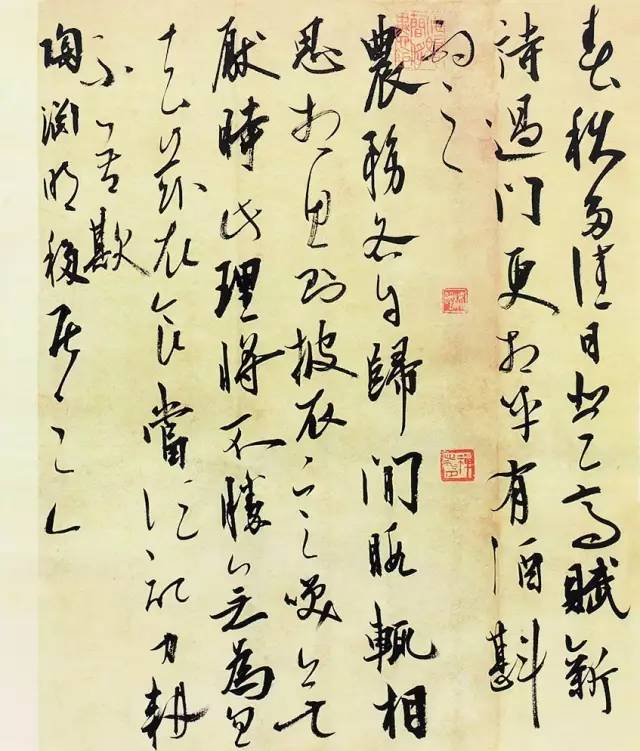 春秋多佳日登高賦新
詩過門更相呼有酒斟
酌之
農務各自歸閒暇輒相
思相思則披衣言笑無
厭時此理將不勝無為忽
去茲衣食當須紀力耕
不吾欺
陶淵明移居